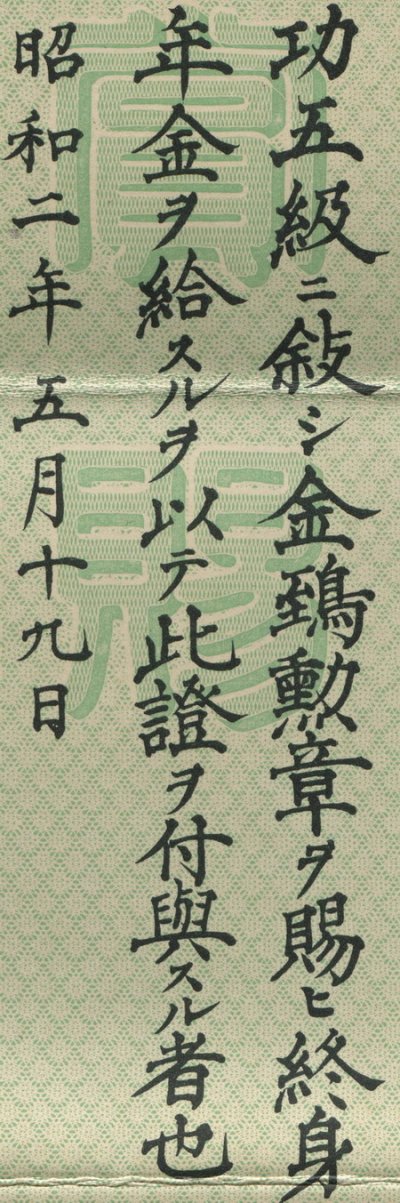 功五級ニ敍シ金鵄勲章ヲ賜ヒ終身
年金ヲ給スルヲ以テ此證ヲ付與スル者也
昭和二年五月十九日
賞賜